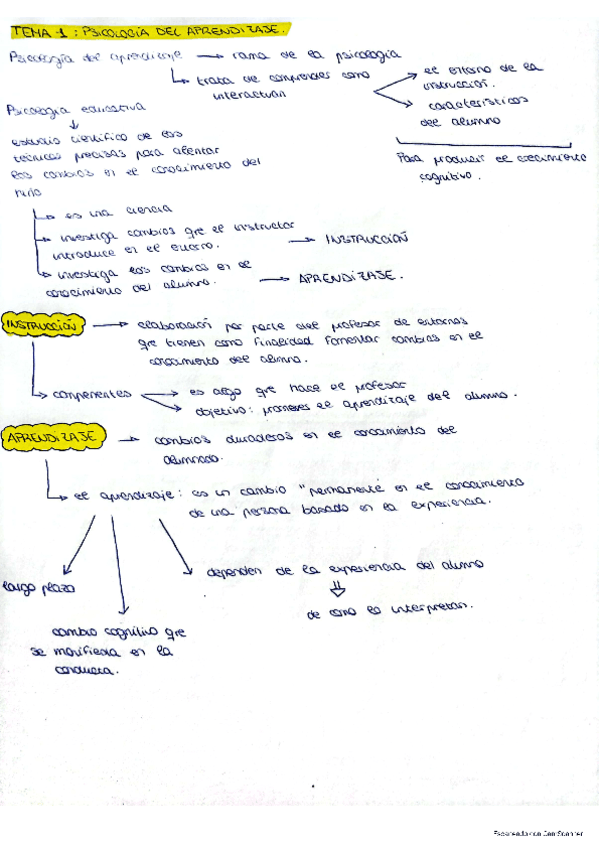 TEMA 1 : PSICOLOGÍA DEL APRENDIZAJE.
Psicología del aprendizaje → rama de la psicología
trata de comprender como
interactúan
el entorno de la
instrucción.
características
del alumno
Para producir el crecimiento
cognitivo.
Psicología educativa
estudio científico de las
técnicas precisas para alentar
los cambios en el conocimiento del
niño
es una ciencia
investiga cambios que el instructor
introduce en el entorno. → INSTRUCCIÓN
investiga los cambios en el
conocimiento del alumno. → APRENDIZAJE.
INSTRUCCIÓN → elaboración por parte del profesor de entornos
que tienen como finalidad fomentar cambios en el
conocimiento del alumno.
componentes
es algo que hace el profesor
objetivo: promover el aprendizaje del alumno.
APRENDIZAJE → cambios duraderos en el conocimiento del
alumnado.
el aprendizaje: es un cambio "permanente" en el conocimiento
de una persona basado en la experiencia.
largo plazo
cambio cognitivo que
se manifiesta en la
conducta.
dependen de la experiencia del alumno
de como la interpretan.
Escaneado con CamScanner